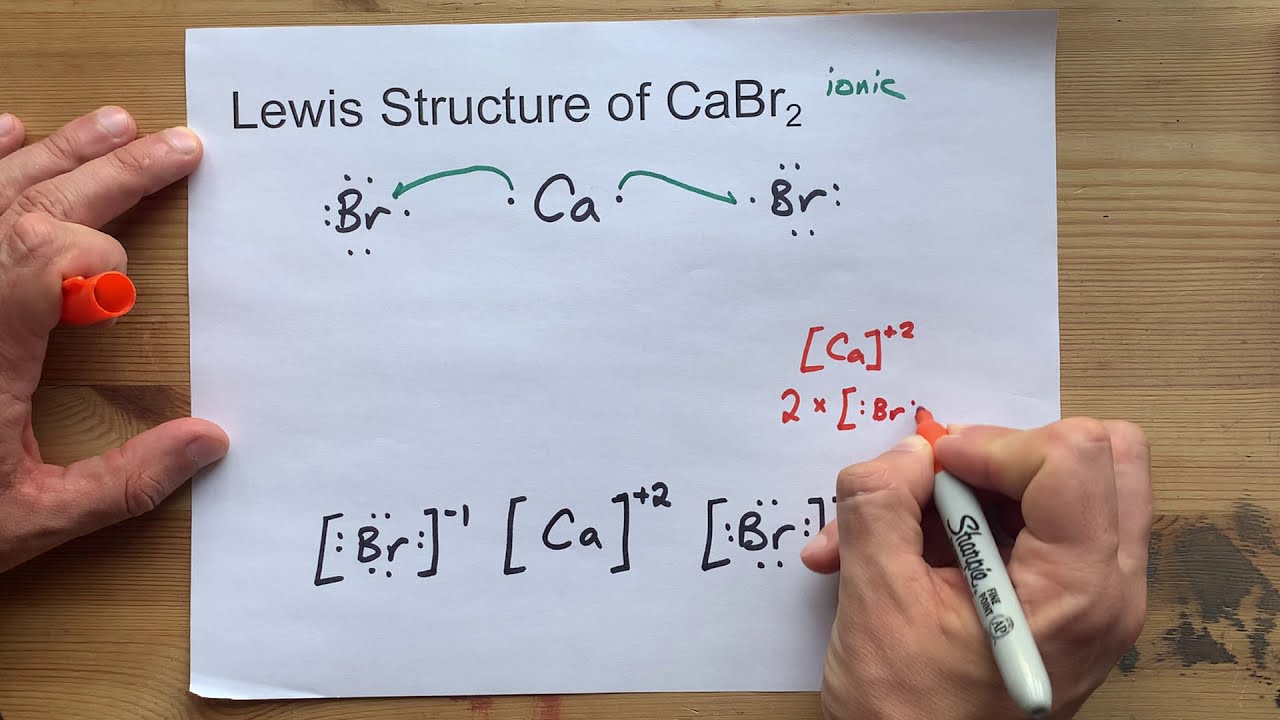 Lewis Structure of CaBr₂ ionic
:Br· ·Ca· ·Br:
[Ca]⁺²
2 × [:Br:
[:Br:]⁻¹ [Ca]⁺² [:Br:]⁻
Sharpie
FINE
POINT
AP